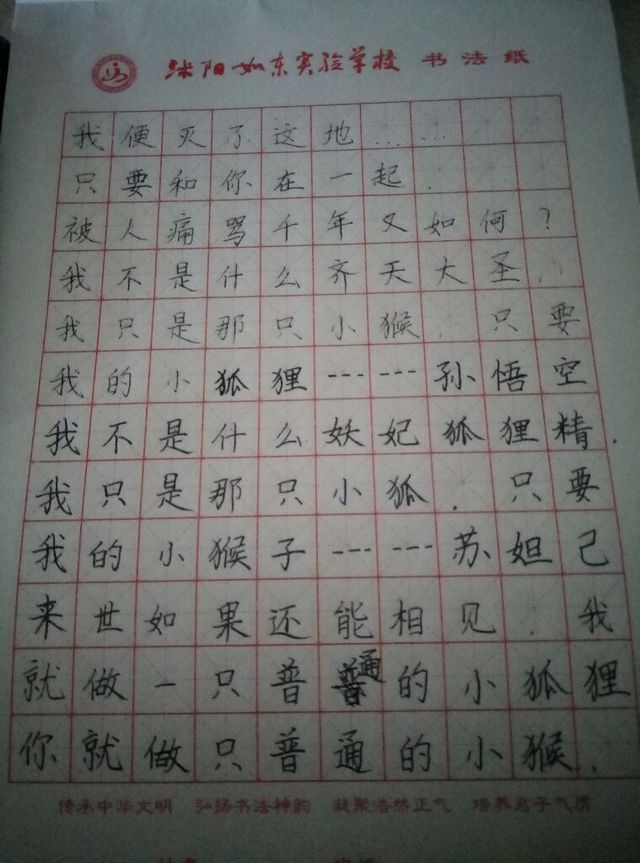 沭阳如东实验学校 书法纸
我便灭了这地……
只要和你在一起.
被人痛骂千年又如何?
我不是什么齐天大圣.
我只是那只小猴.只要
我的小狐狸------孙悟空
我不是什么妖妃狐狸精.
我只是那只小狐.只要
我的小猴子------苏妲己
来世如果还能相见.我
就做一只普通的小狐狸
你就做只普通的小猴.
传承中华文明 弘扬书法神韵 凝聚浩然正气 培养君子气质